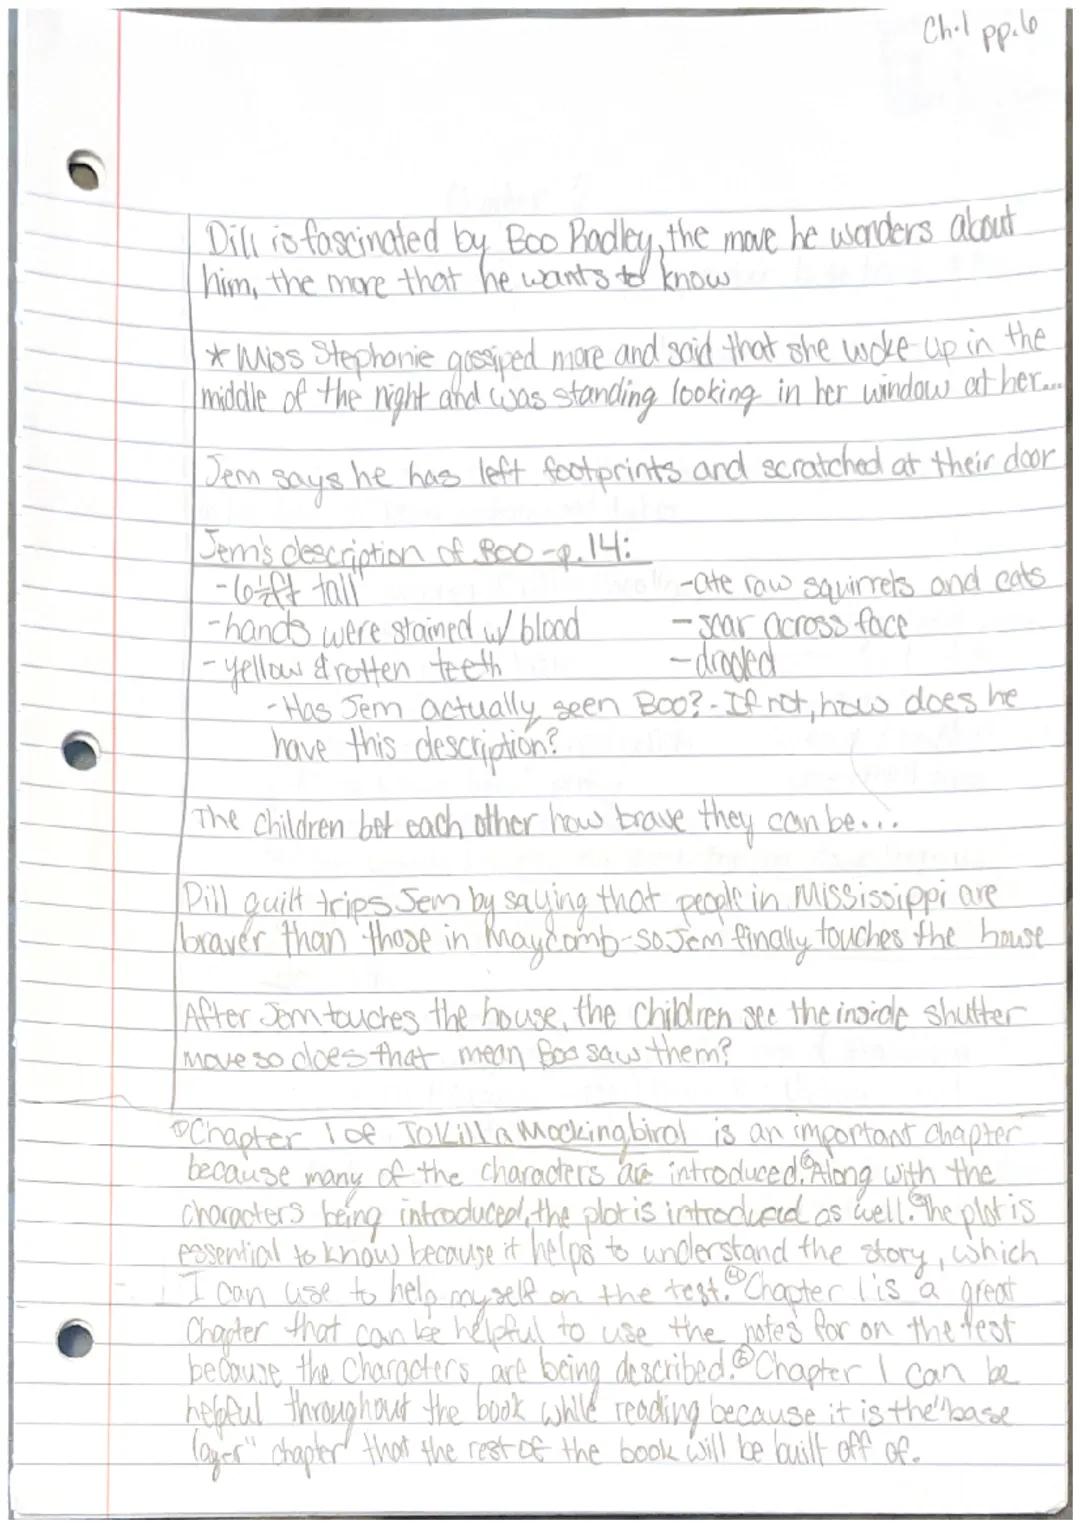 Ch.1 pp.6
Dill is fascinated by Boo Radley, the more he wonders about
him, the more that he wants to know
* Miss Stephanie gossiped more and said that she woke up in the
middle of the night and was standing looking in her window at her...
Jem says he has left footprints and scratched at their door
Jem's description of Boo - p. 14:
- 6½ft tall
- ate raw squirrels and cats
- hands were stained w/ blood
- scar across face
- yellow & rotten teeth
- drooled
- Has Jem actually seen Boo? - If not, how does he
have this description?
The children bet each other how brave they can be...
Dill guilt trips Jem by saying that people in Mississippi are
braver than those in Maycomb - so Jem finally touches the house
After Jem touches the house, the children see the inside shutter
move so does that mean Boo saw them?
①Chapter 1 of To Kill a Mockingbird is an important chapter
because many of the characters are introduced.②Along with the
characters being introduced, the plot is introduced as well.③The plot is
essential to know because it helps to understand the story, which
I can use to help myself on the test.④Chapter 1 is a great
Chapter that can be helpful to use the notes for on the test
because the characters are being described.⑤Chapter 1 can be
helpful throughout the book while reading because it is the "base
layer" chapter that the rest of the book will be built off of.